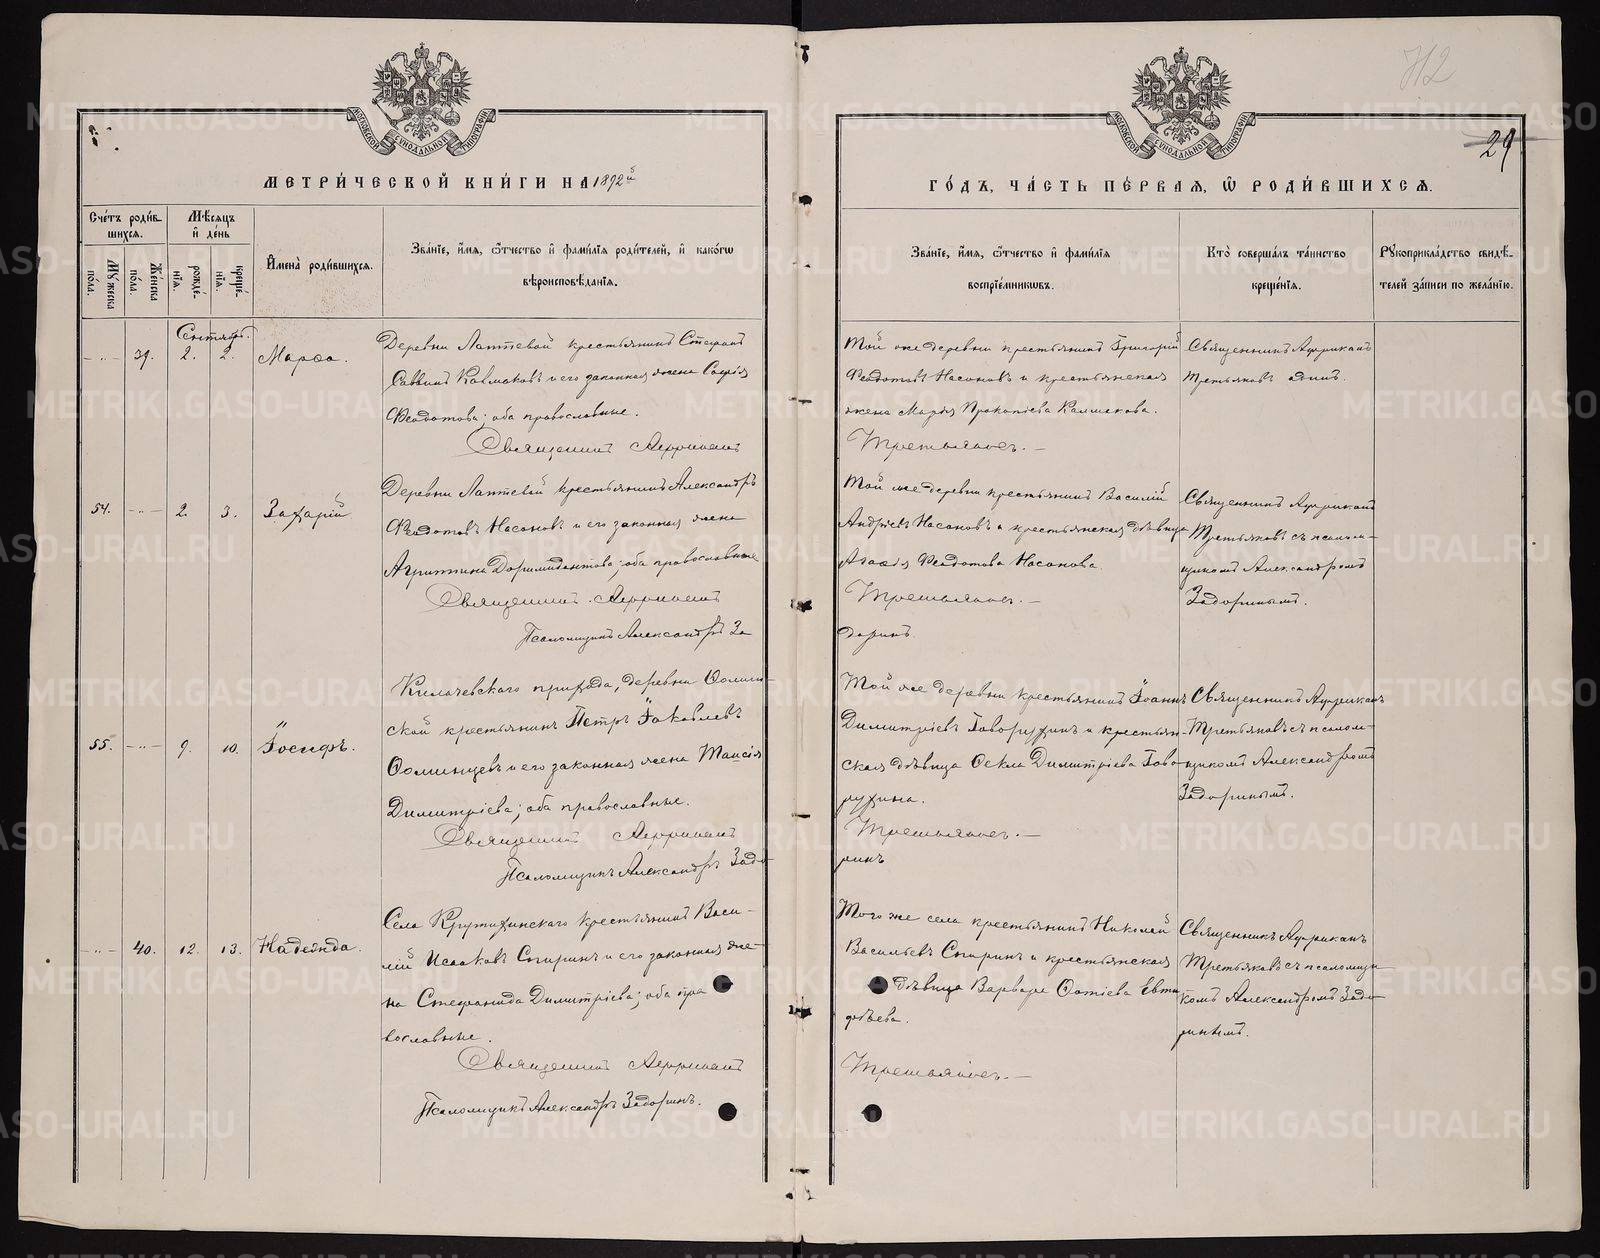 МЕТРИ́ЧЕСКОЙ КНИ́ГИ НА 1892й
Сче́тъ роди́в-
шихся.
Мѣ́сяцъ
и́ де́нь
Му́жеска
по́ла.
Же́нска
по́ла.
рожде́-
нїя.
креще́-
нїя.
И҆мена̀ роди́вшихся.
Зва́нїе, и҆́мя, ѻ҆́тчество и҆ фами́лїя роди́телей, и҆ како́гѡ
вѣроисповѣ́данїя.
Сентябр.
39. 2. 2. Марѳа.
Деревни Лаптевой крестьянинъ Стефанъ
Саввинъ Калмаковъ и его законная жена Софія
Ѳеодотова; оба православные.
Священникъ Африканъ
54. 2. 3. Захарій
Деревни Лаптевой крестьянинъ Александръ
Ѳеодотовъ Насоновъ и его законная жена
Агриппина Доримидонтова; оба православные
Священникъ Африканъ
Псаломщикъ Александръ За
55. 9. 10. Іосифъ.
Килачевскаго прихода, деревни Ѳомин-
ской крестьянинъ Петръ Іаковлевъ
Ѳоминцевъ и его законная жена Таисія
Димитріева; оба православные.
Священникъ Африканъ
Псаломщикъ Александръ Задо-
40. 12. 13. Надежда.
Села Крутихинскаго крестьянинъ Васи-
лій Исааковъ Спиринъ и его законная же-
на Стефанида Димитріева; оба пра
вославные.
Священникъ Африканъ
Псаломщикъ Александръ Задоринъ.
Н2
29
ГО́ДЪ, ЧА́СТЬ ПЕ́РВАЯ, Ѽ РОДИ́ВШИХСЯ.
Зва́нїе, и҆́мя, ѻ҆́тчество и҆ фами́лїя
воспрїе́мникѡвъ.
Кто̀ соверша́лъ та́инство
креще́нїя.
Рꙋкоприкла́дство свидѣ́-
телей за́писи по жела́нїю.
Той же деревни крестьянинъ Григорій
Ѳеодотовъ Насоновъ и крестьянская
жена Марія Прокопіева Калмакова.
Третьяковъ.—
Священникъ Африканъ
Третьяковъ одинъ.
Той же деревни крестьянинъ Василій
Андріевъ Насоновъ и крестьянская дѣвица
Агафія Ѳеодотова Насонова
Третьяковъ.—
доринъ.
Священникъ Африканъ
Третьяковъ съ псалом-
щикомъ Александромъ
Задоринымъ.
Той же деревни крестьянинъ Іоаннъ
Димитріевъ Говорухинъ и крестьян-
ская дѣвица Ѳекла Димитріева Гово-
рухина.
Третьяковъ.—
ринъ
Священникъ Африканъ
Третьяковъ съ псалом-
щикомъ Александромъ
Задоринымъ.
Того же села крестьянинъ Николай
Васильевъ Спиринъ и крестьянская
дѣвица Варвара Фотіева Евти
фѣева.
Третьяковъ.—
Священникъ Африканъ
Третьяковъ съ псаломщи-
комъ Александромъ Задо-
ринымъ.
METRIKI.GASO-URAL.RU